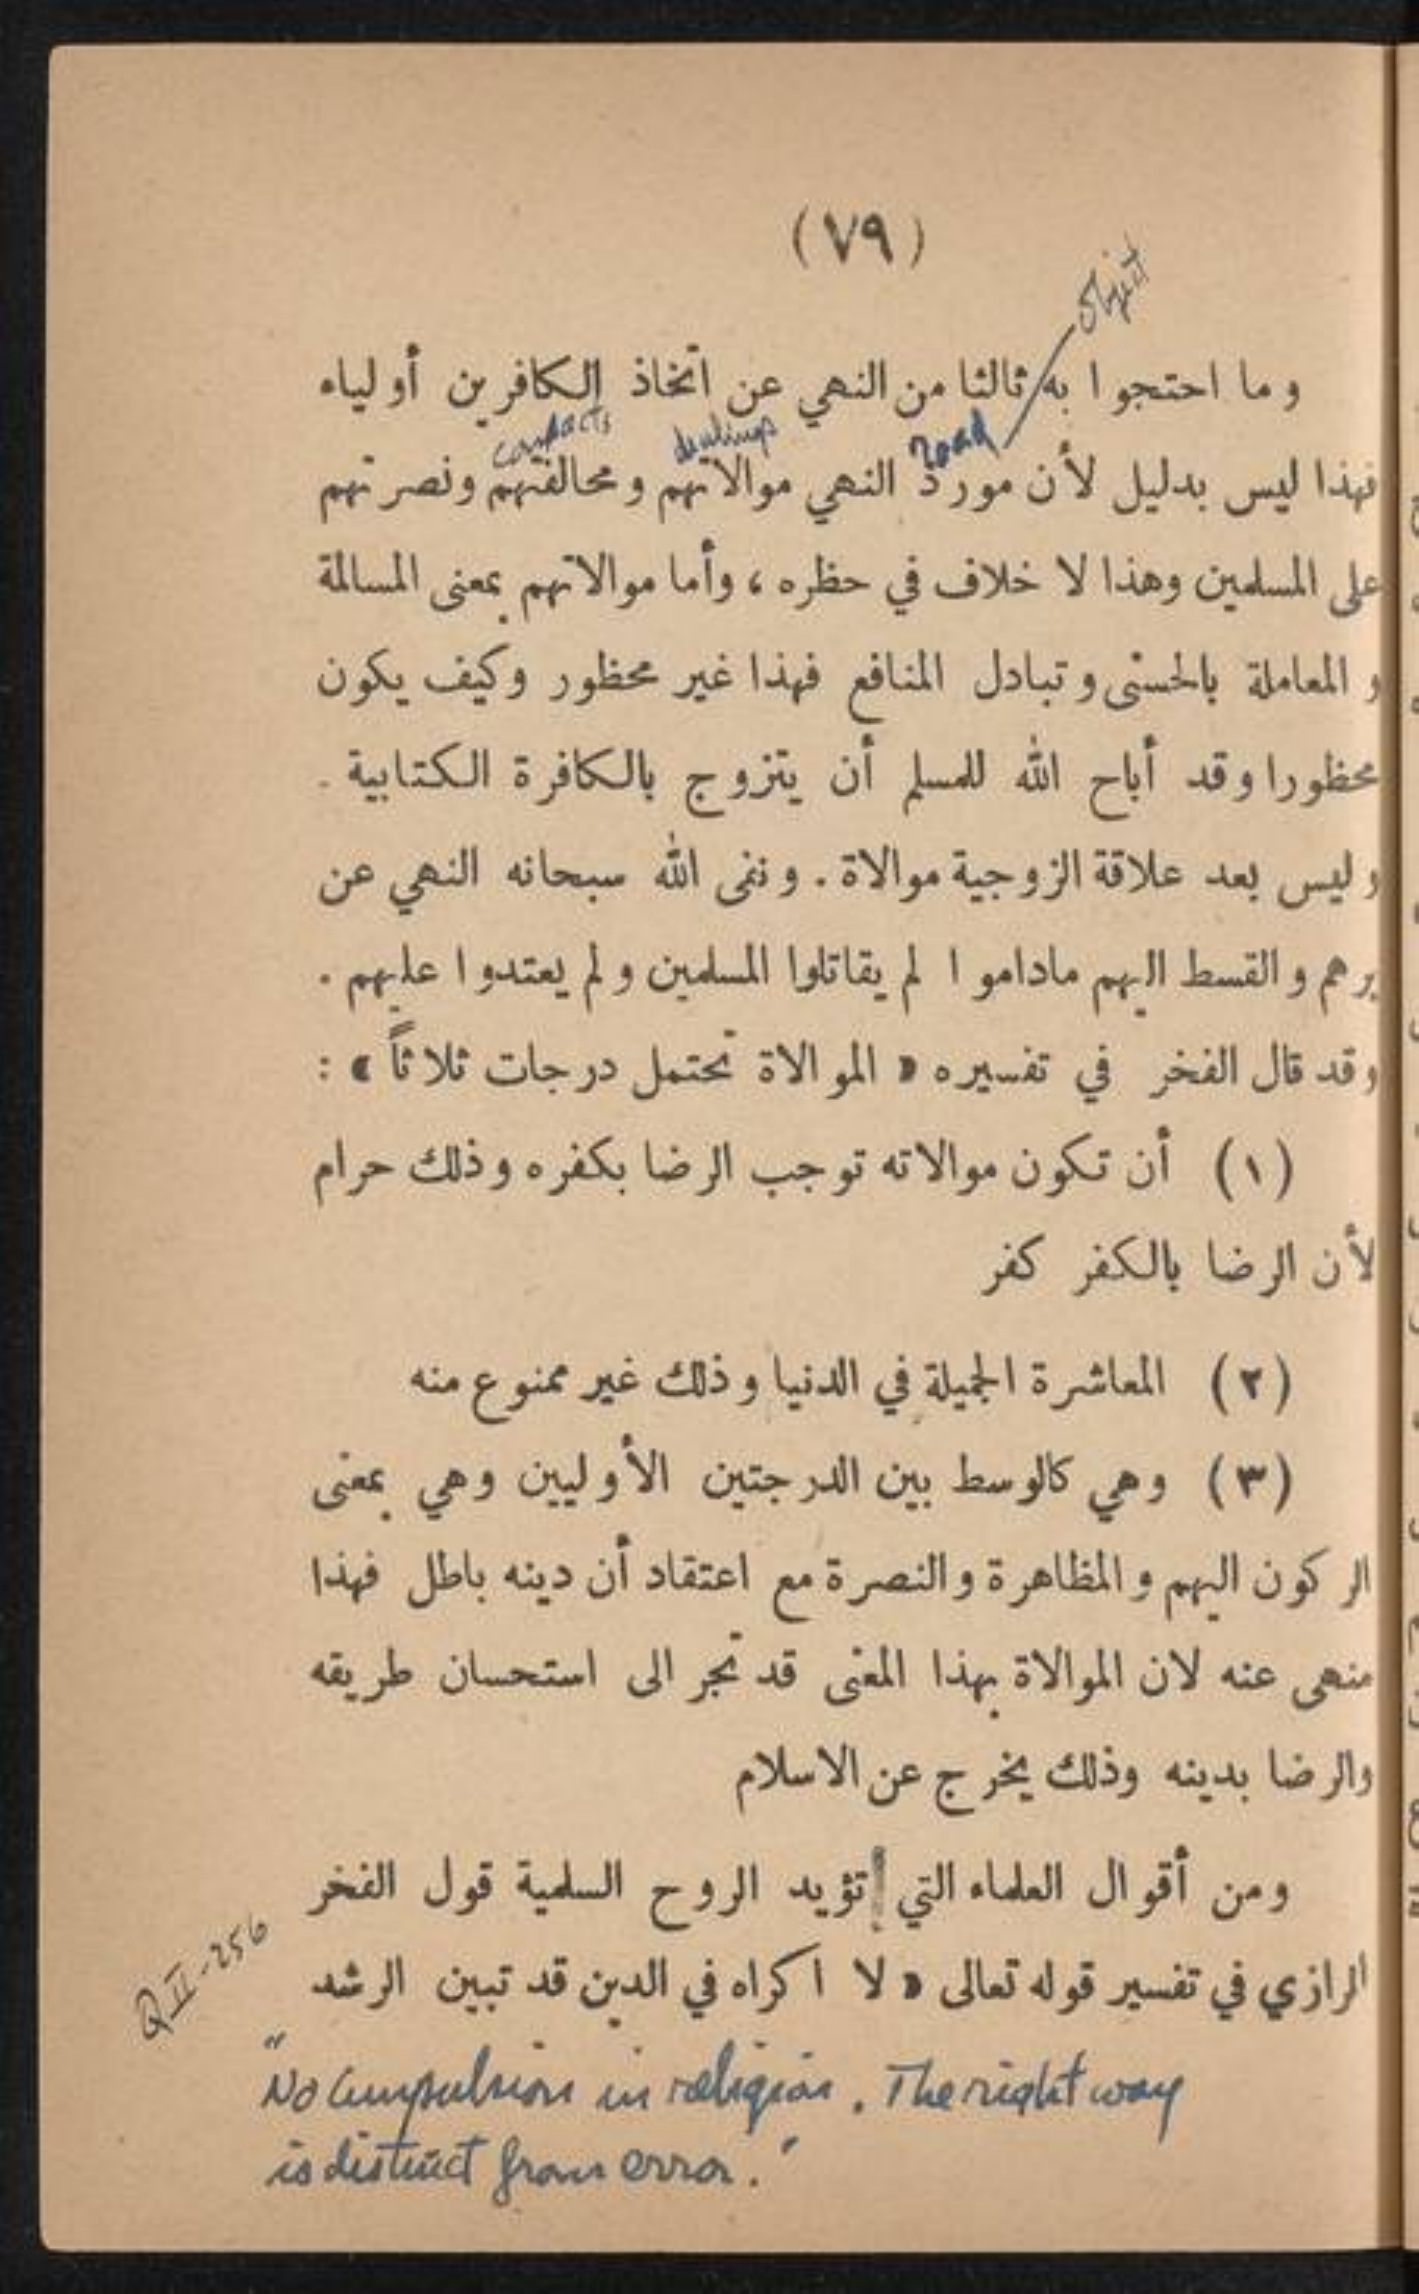 (٧٩)
object
وما احتجوا به ثالثا من النهي عن اتخاذ الكافرين أولياء
road dealings compacts
فهذا ليس بدليل لأن مورد النهي موالاتهم ومحالفتهم ونصرتهم
على المسلمين وهذا لا خلاف في حظره ، وأما موالاتهم بمعنى المسالمة
والمعاملة بالحسنى وتبادل المنافع فهذا غير محظور وكيف يكون
محظورا وقد أباح الله للمسلم أن يتزوج بالكافرة الكتابية .
وليس بعد علاقة الزوجية موالاة . ونفى الله سبحانه النهي عن
برهم والقسط اليهم ماداموا لم يقاتلوا المسلمين ولم يعتدوا عليهم .
وقد قال الفخر في تفسيره « الموالاة تحتمل درجات ثلاثاً » :
(١) أن تكون موالاته توجب الرضا بكفره وذلك حرام
لأن الرضا بالكفر كفر
(٢) المعاشرة الجميلة في الدنيا وذلك غير ممنوع منه
(٣) وهي كالوسط بين الدرجتين الأوليين وهي بمعنى
الركون اليهم والمظاهرة والنصرة مع اعتقاد أن دينه باطل فهذا
منهى عنه لان الموالاة بهذا المعنى قد تجر الى استحسان طريقه
والرضا بدينه وذلك يخرج عن الاسلام
ومن أقوال العلماء التي تؤيد الروح السلمية قول الفخر
الرازي في تفسير قوله تعالى « لا اكراه في الدين قد تبين الرشد
Q II - 256
"No Compulsion in religion. The right way
is distinct from error."